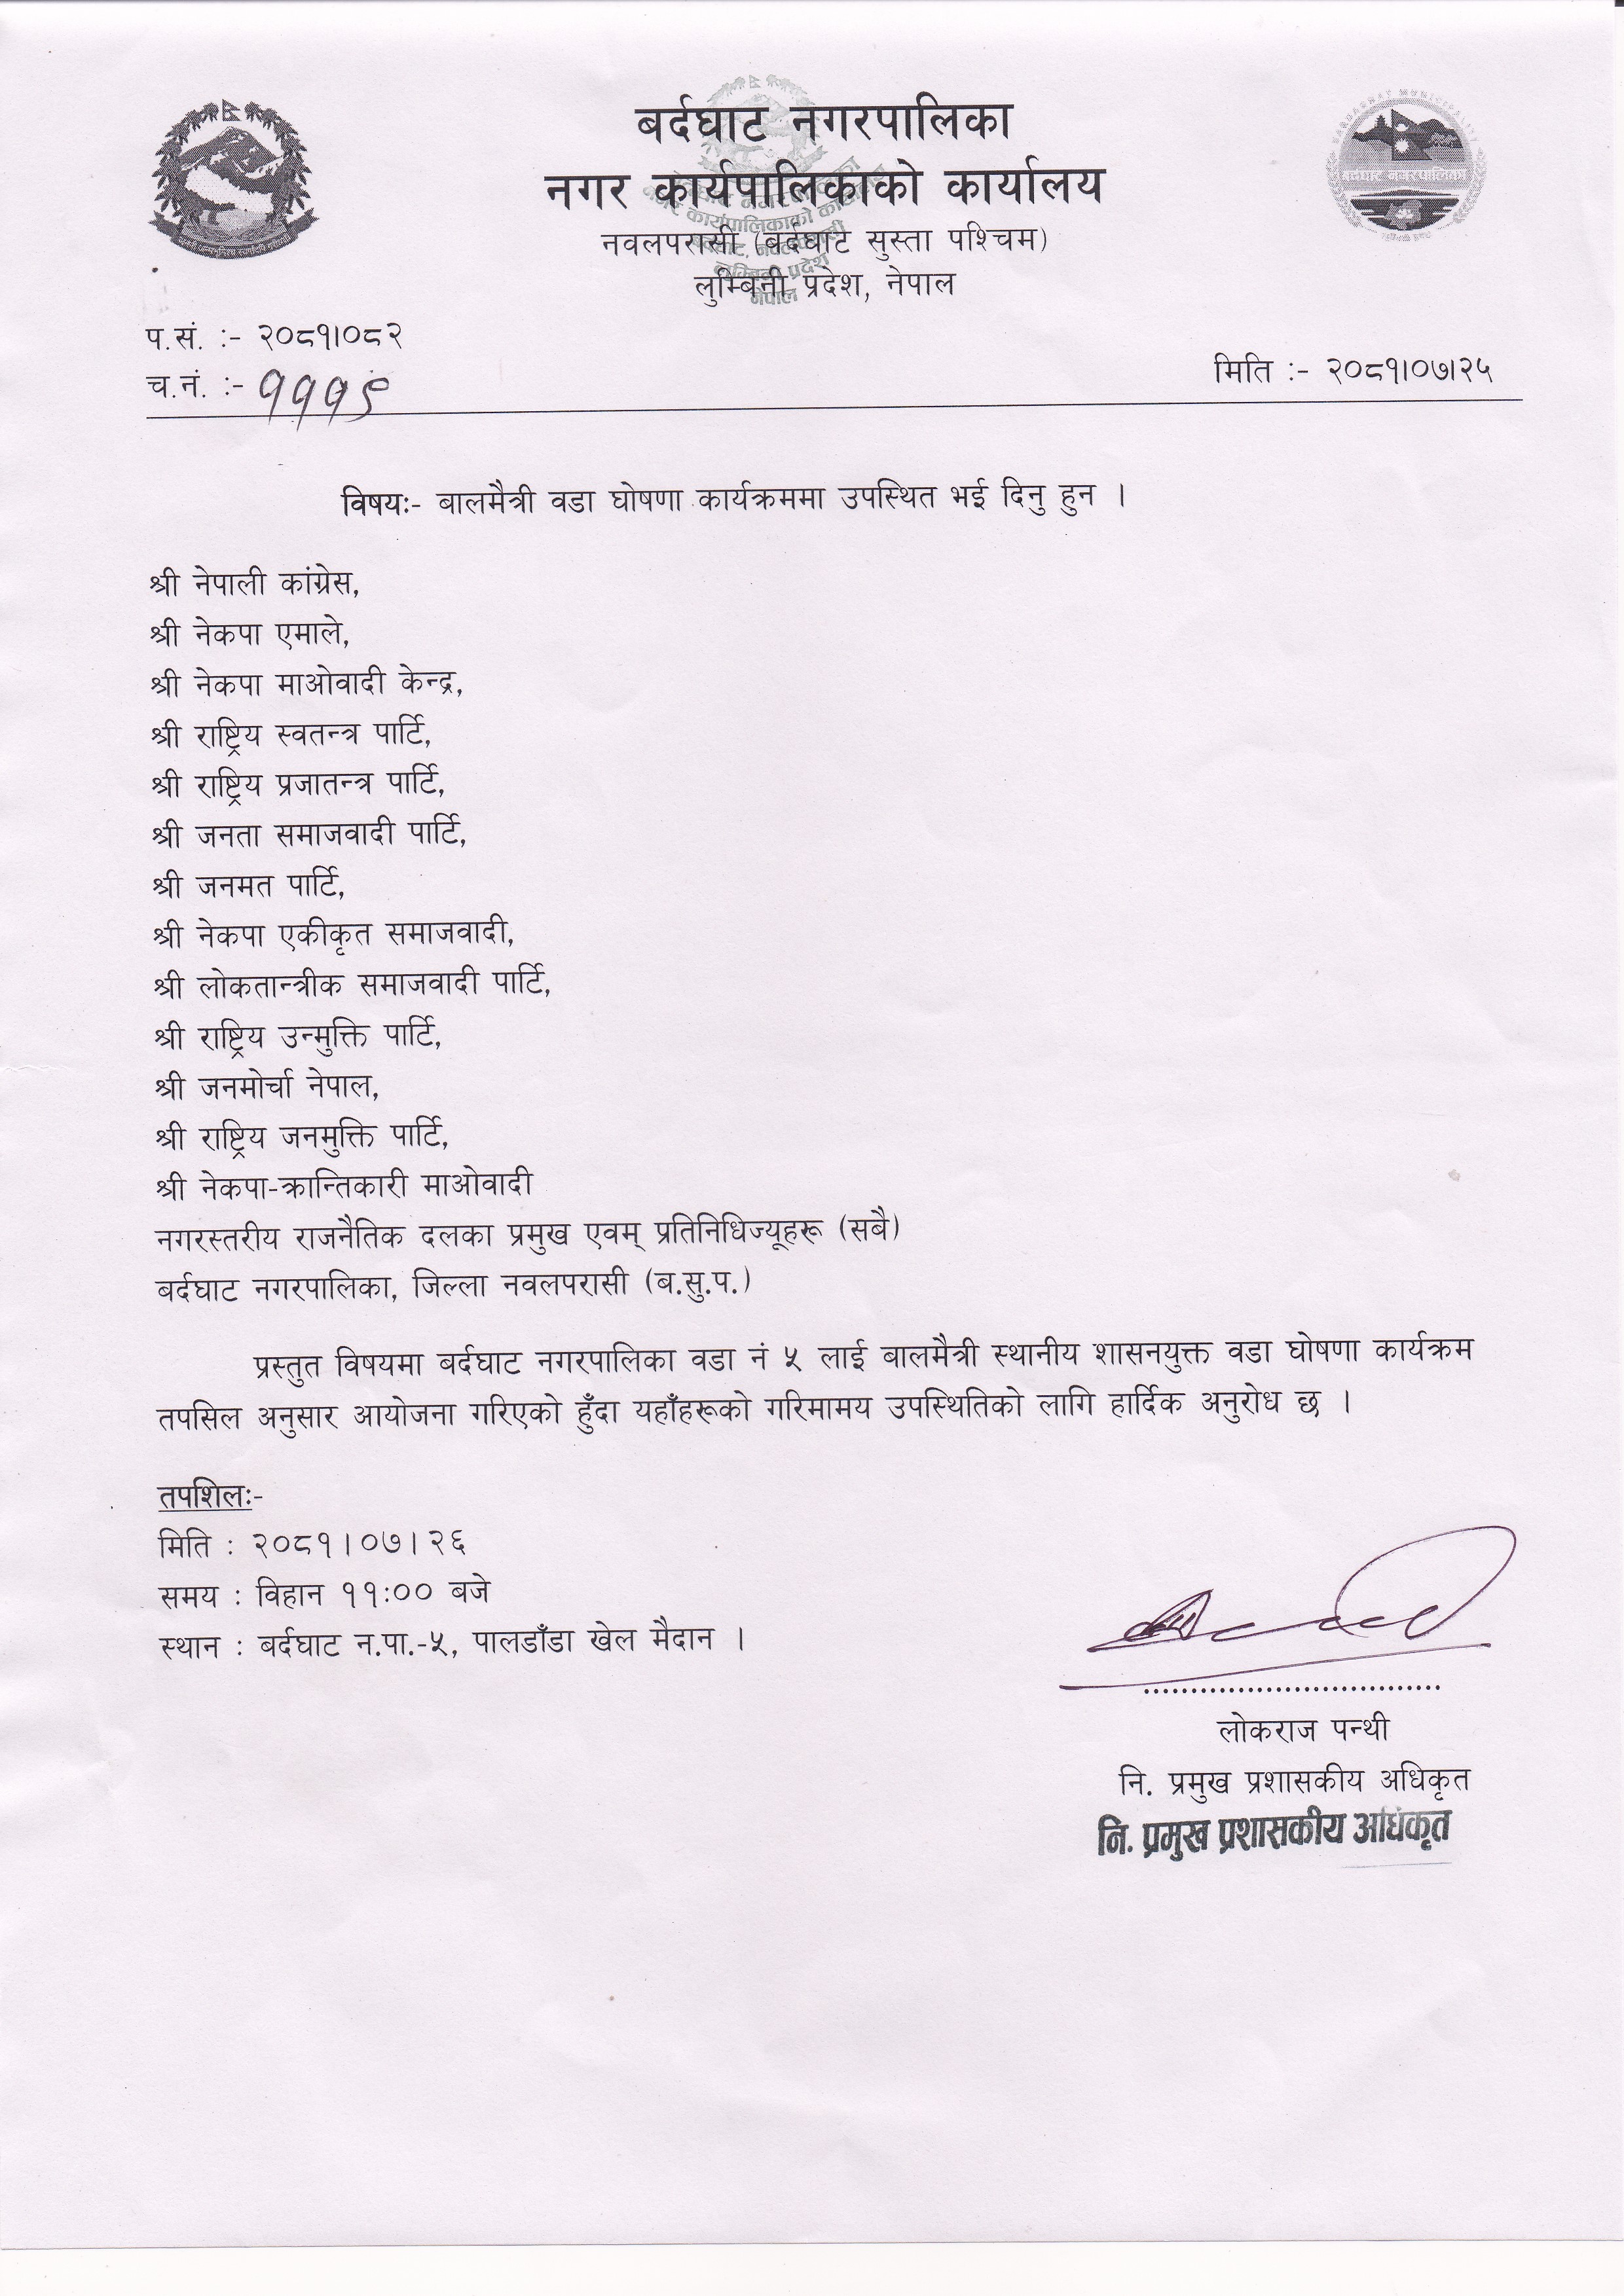 बर्दघाट नगरपालिका
नगर कार्यपालिकाको कार्यालय
नवलपरासी (बर्दघाट सुस्ता पश्चिम)
लुम्बिनी प्रदेश, नेपाल
बर्दघाट नगरपालिका
प.सं. :- २०८१।०८२
मिति :- २०८१।०७।२५
च.नं. :- १११९
विषयः- बालमैत्री वडा घोषणा कार्यक्रममा उपस्थित भई दिनु हुन ।
श्री नेपाली कांग्रेस,
श्री नेकपा एमाले,
श्री नेकपा माओवादी केन्द्र,
श्री राष्ट्रिय स्वतन्त्र पार्टि,
श्री राष्ट्रिय प्रजातन्त्र पार्टि,
श्री जनता समाजवादी पार्टि,
श्री जनमत पार्टि,
श्री नेकपा एकीकृत समाजवादी,
श्री लोकतान्त्रीक समाजवादी पार्टि,
श्री राष्ट्रिय उन्मुक्ति पार्टि,
श्री जनमोर्चा नेपाल,
श्री राष्ट्रिय जनमुक्ति पार्टि,
श्री नेकपा-क्रान्तिकारी माओवादी
नगरस्तरीय राजनैतिक दलका प्रमुख एवम् प्रतिनिधिज्यूहरू (सबै)
बर्दघाट नगरपालिका, जिल्ला नवलपरासी (ब.सु.प.)
प्रस्तुत विषयमा बर्दघाट नगरपालिका वडा नं ५ लाई बालमैत्री स्थानीय शासनयुक्त वडा घोषणा कार्यक्रम
तपसिल अनुसार आयोजना गरिएको हुँदा यहाँहरूको गरिमामय उपस्थितिको लागि हार्दिक अनुरोध छ ।
तपशिलः-
मिति : २०८१।०७।२६
समय : विहान ११:०० बजे
स्थान : बर्दघाट न.पा.-५, पालडाँडा खेल मैदान ।
................................
लोकराज पन्थी
नि. प्रमुख प्रशासकीय अधिकृत
नि. प्रमुख प्रशासकीय अधिकृत